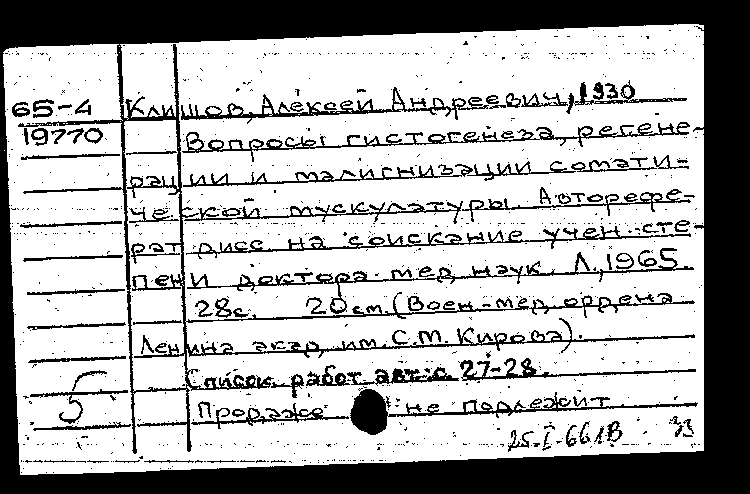 65-4 Клишов, Алексей Андреевич, 1930
19770 Вопросы гистогенеза, регене-
рации и малигнизации сомати-
ческой мускулатуры. Авторефе-
рат дисс. на соискание учен. сте-
пени доктора мед. наук. Л., 1965.
28с. 20см. (Воен.-мед. ордена
Ленина акад. им. С.М. Кирова).
Список работ авт: с. 27-28.
5 Продаже не подлежит
25-I-66 1В